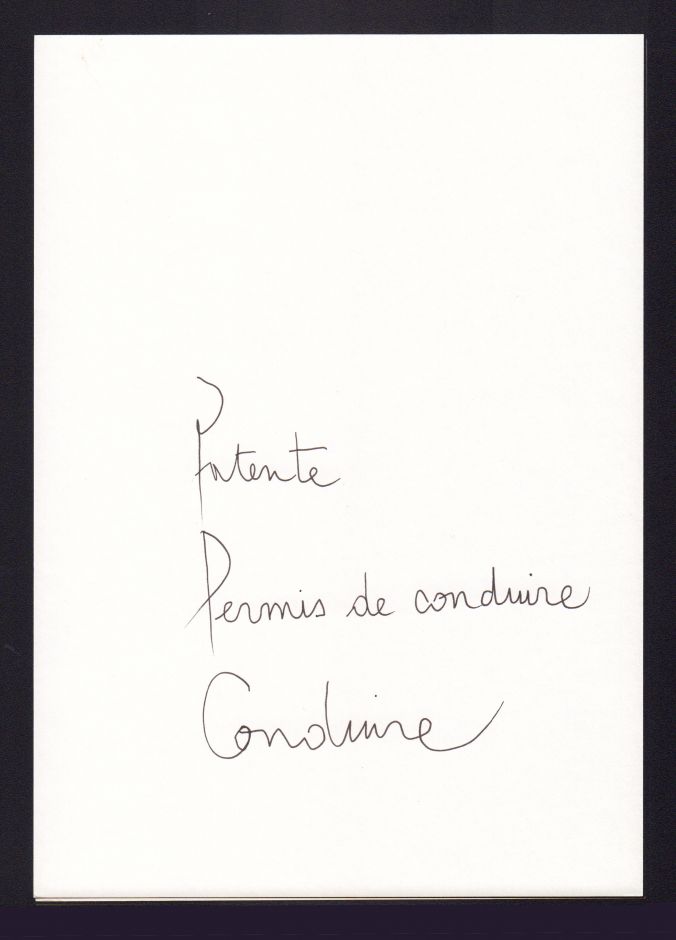 Patente
Permis de conduire
Conduire